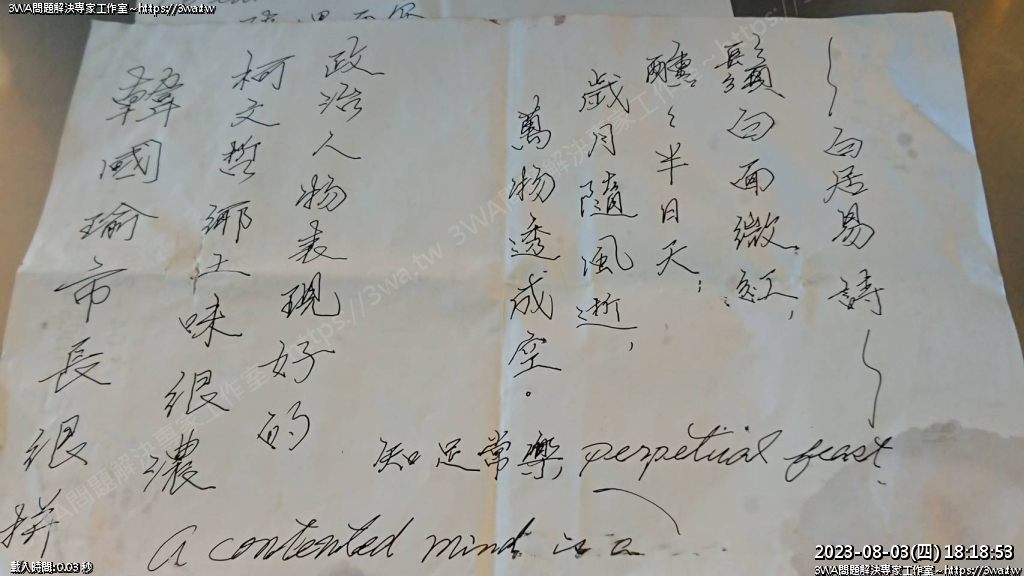 3WA問題解決專家工作室~https://3wa.tw
3WA問題解決專家工作室~https://3wa.tw
~白居易 詩~
鬚白面微紅,
醺々半日天,
歲月隨風逝,
萬物透成空。
知足常樂 perpetual feast.
A contented mind is a
政治人物表現好的
柯文哲鄉土味很濃
韓國瑜市長很拼
載入時間:0.03 秒
2023-08-03(四) 18:18:53
3WA問題解決專家工作室~https://3wa.tw